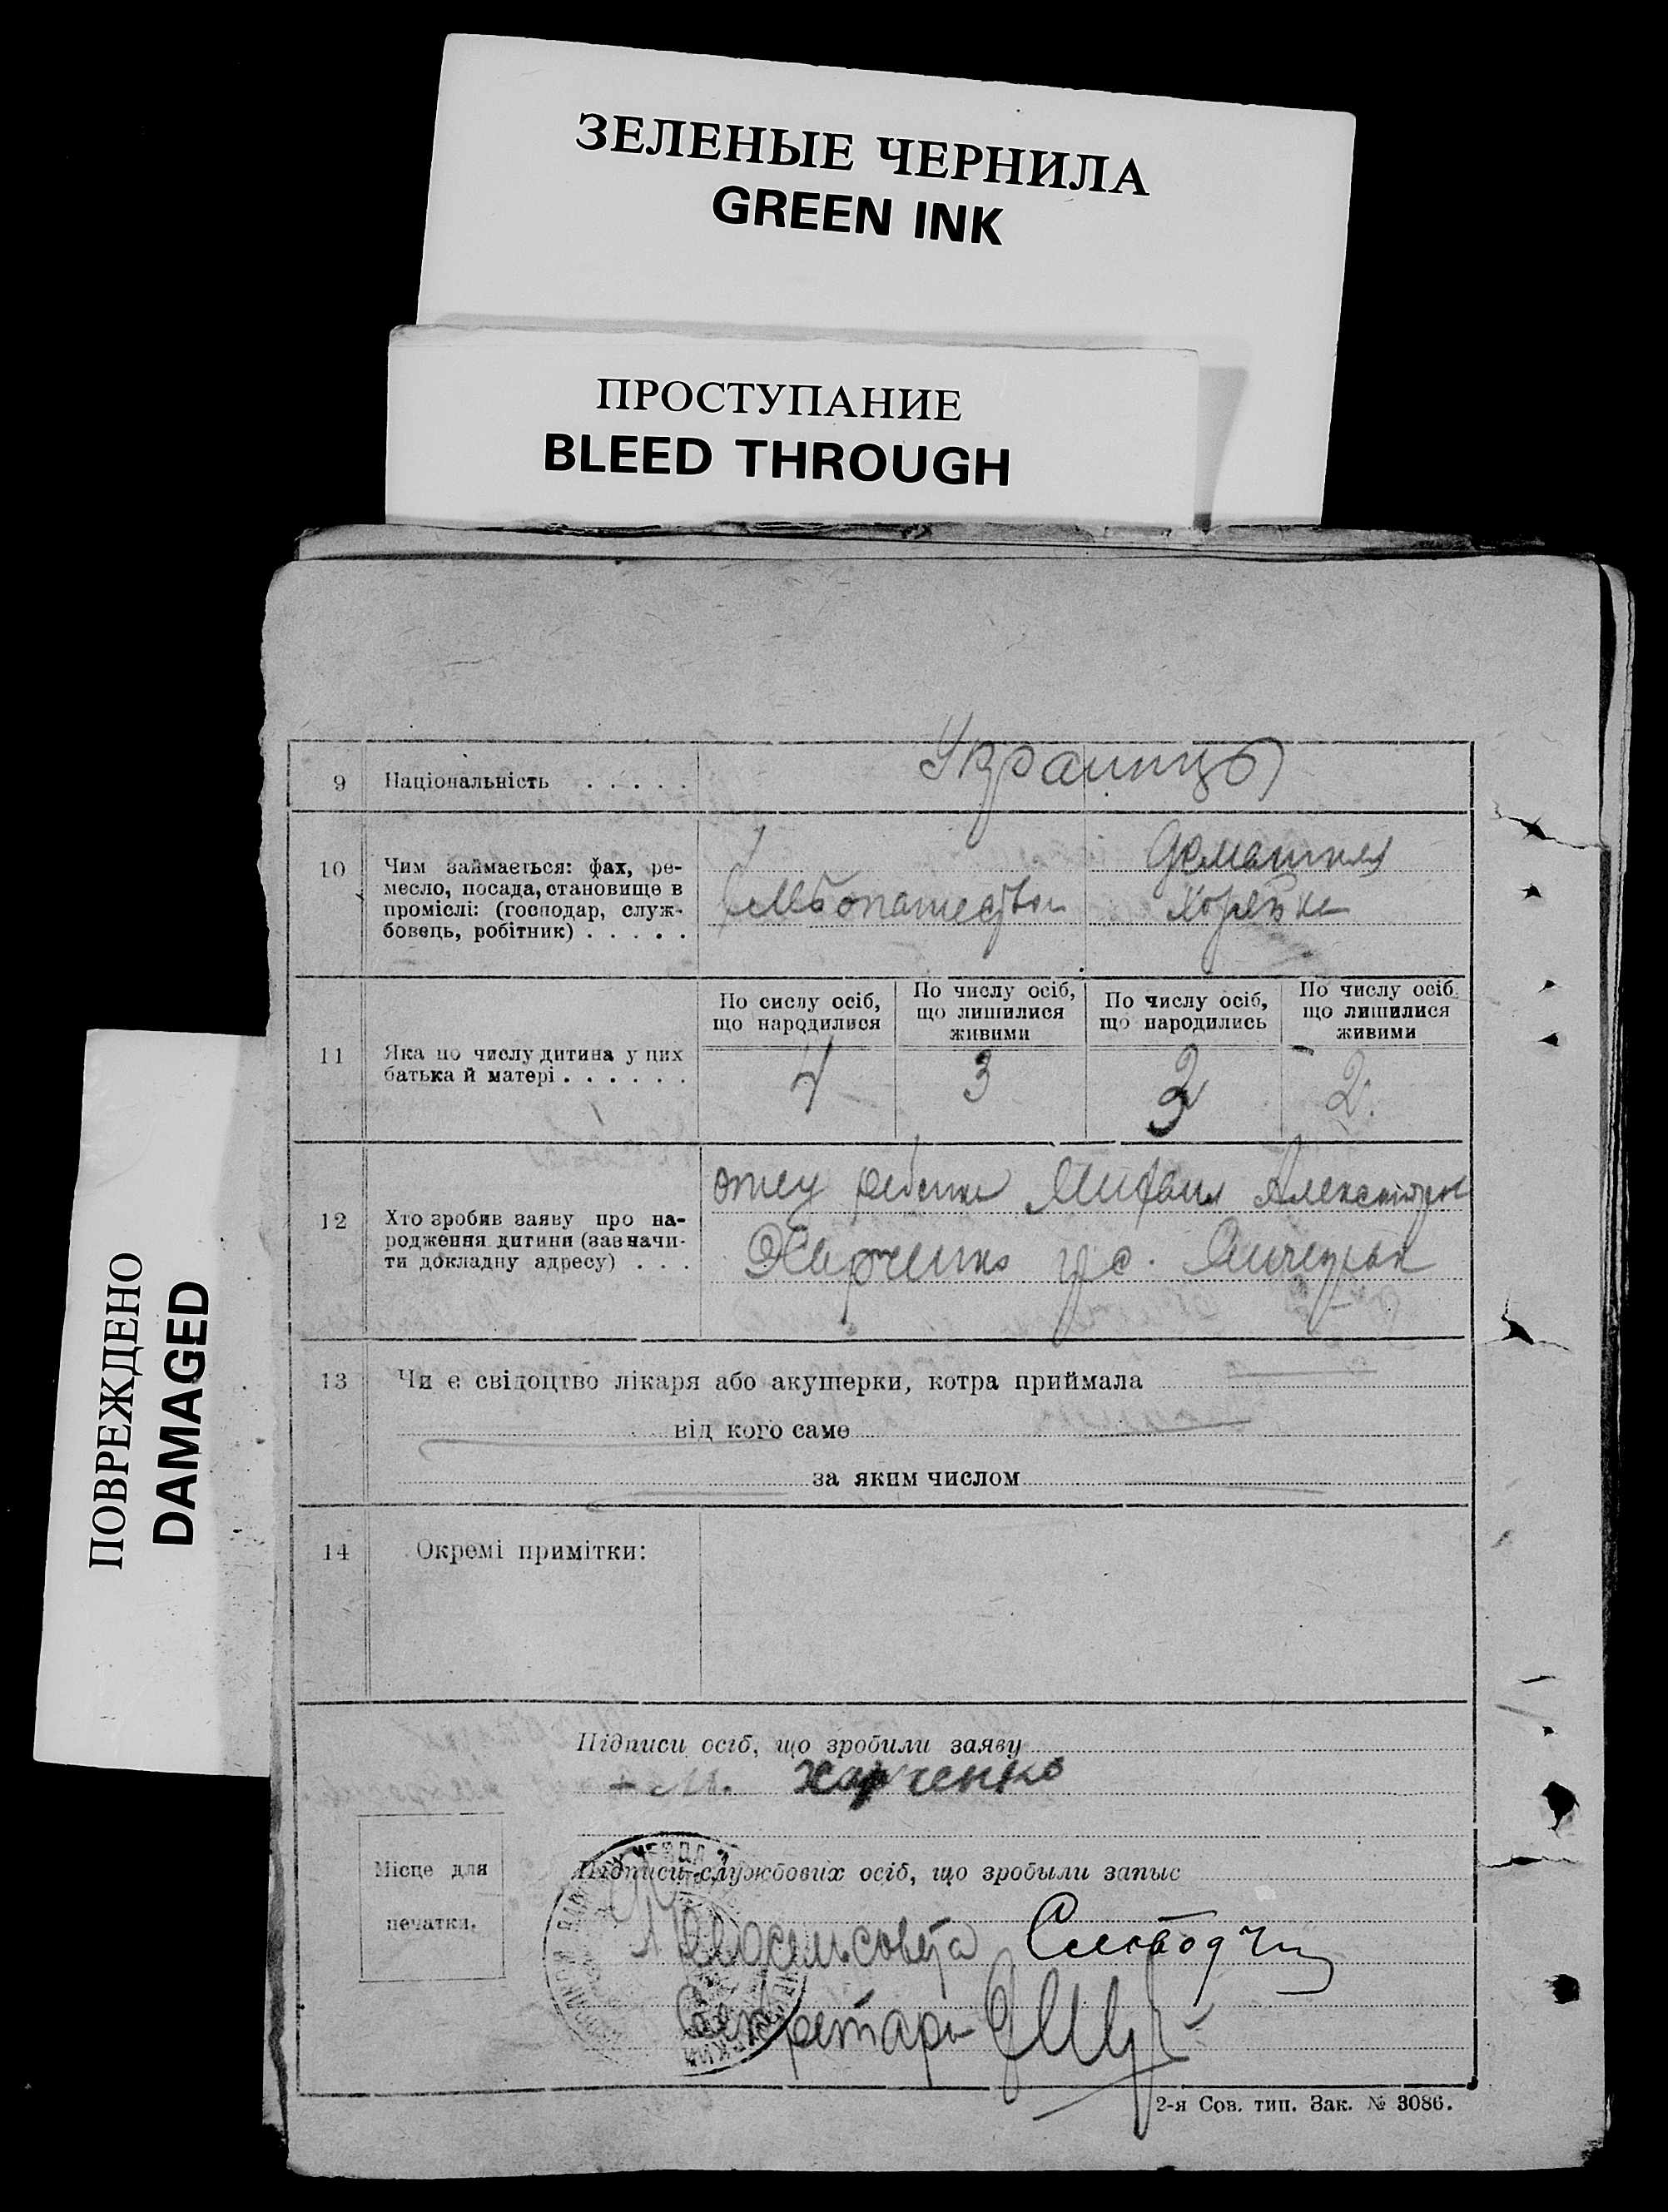 ЗЕЛЕНЫЕ ЧЕРНИЛА
GREEN INK
ПРОСТУПАНИЕ
BLEED THROUGH
ПОВРЕЖДЕНО
DAMAGED
9 Національність . . . . .
Украинцы
10 Чим займається: фах, ре-
месло, посада, становище в
проміслі: (господар, служ-
бовець, робітник) . . . . .
Хлебопашество
Домашняя
Хозяйка
11 Яка по числу дитина у цих
батька й матері . . . . . .
По сислу осіб,
що народилися
По числу осіб,
що лишилися
живими
По числу осіб,
що народились
По числу осіб
що лишилися
живими
4 3 3 2.
12 Хто зробив заяву про на-
родження дитини (зазначи-
ти докладну адресу) . . .
отец ребенка Михаил
Харченко
13 Чи є свідоцтво лікаря або акушерки, котра приймала
від кого саме
за яким числом
14 Окремі примітки:
Підписи осіб, що зробили заяву
Харченко
Місце для
печатки.
Підписи службових осіб, що зробыли запыс
сельсовета
Секретарь
2-я Сов. тип. Зак. № 3086.